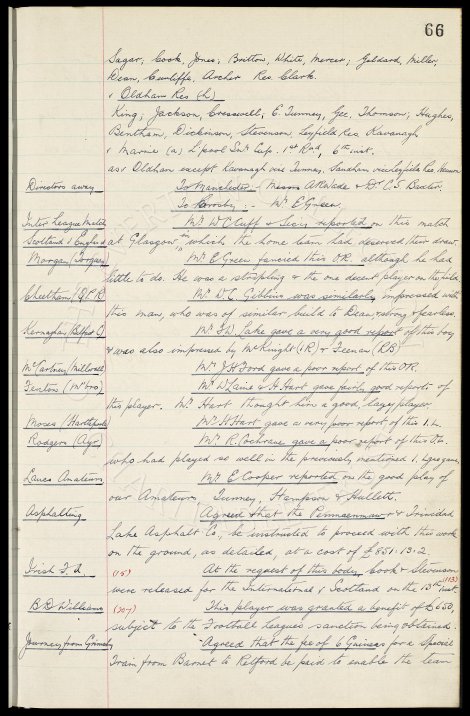 66
Sagar; Cook, Jones; Britton, White, Mercer; Geldard, Miller,
Dean, Cunliffe, Archer Res Clark.
v Oldham Res (h)
King; Jackson, Cresswell; E. Tunney, Gee, Thomson; Hughes,
Bentham, Dickinson, Stevenson, Leyfield Res. Kavanagh
v Marine (a) L'pool Snr Cup. 1st Rnd, 6th inst.
as v Oldham except Kavanagh vice Tunney, Sandham vice Leyfield
Directors away To Manchester :- Messrs A R Wade & Dr C.S. Baxter.
To Crosby :- Mr E Green.
Inter League Match Mr W C Cuff & Secy reported on this match
Scotland v England at Glasgow in which the home team had deserved their draw.
Morgan (Torquay) Mr E Green fancied this OR although he had
little to do. He was a stripling & the one decent player on the field
Cheetham (Q.P.R) Mr W C Gibbins was similarly impressed with
this man, who was of similar build to Dean, strong & fearless.
Kernaghan (Belfast C) Mr T W Lake gave a very good report of this boy
& was also impressed by McKnight (IR) & Feenan (RB)
McCartney (Millwall) Mr J H Ford gave a poor report of this OR.
Fenton (M'bro) Mr W Laine & H Hart gave fairly good reports of
this player. Mr Hart thought him a good, lazy player
Moses (Hartlepools) Mr H Hart gave a very poor report of this
Rodgers (Ayr) Mr R. Cochrane gave a poor report of this
who had played so well in the previously mentioned game
Lancs Amateurs Mr E Cooper reported on the good play of
our Amateurs, Tunney, Hampson & Hullett.
Asphalting Agreed that the Penmaenmawr & Trinidad
Lake Asphalt Co, be instructed to proceed with this work
on the ground, as detailed, at a cost of £851.13.2.
Irish F.A. (15) At the request of this body, Cook & Stevenson (113)
were released for the International v Scotland on the 13th inst.
B D Williams (307) This player was granted a benefit of £650,
subject to the Football League's sanction being obtained.
Journey from Grimsby Agreed that the fee of 6 Guineas for a Special
Train from Barnet to Retford be paid to enable the team